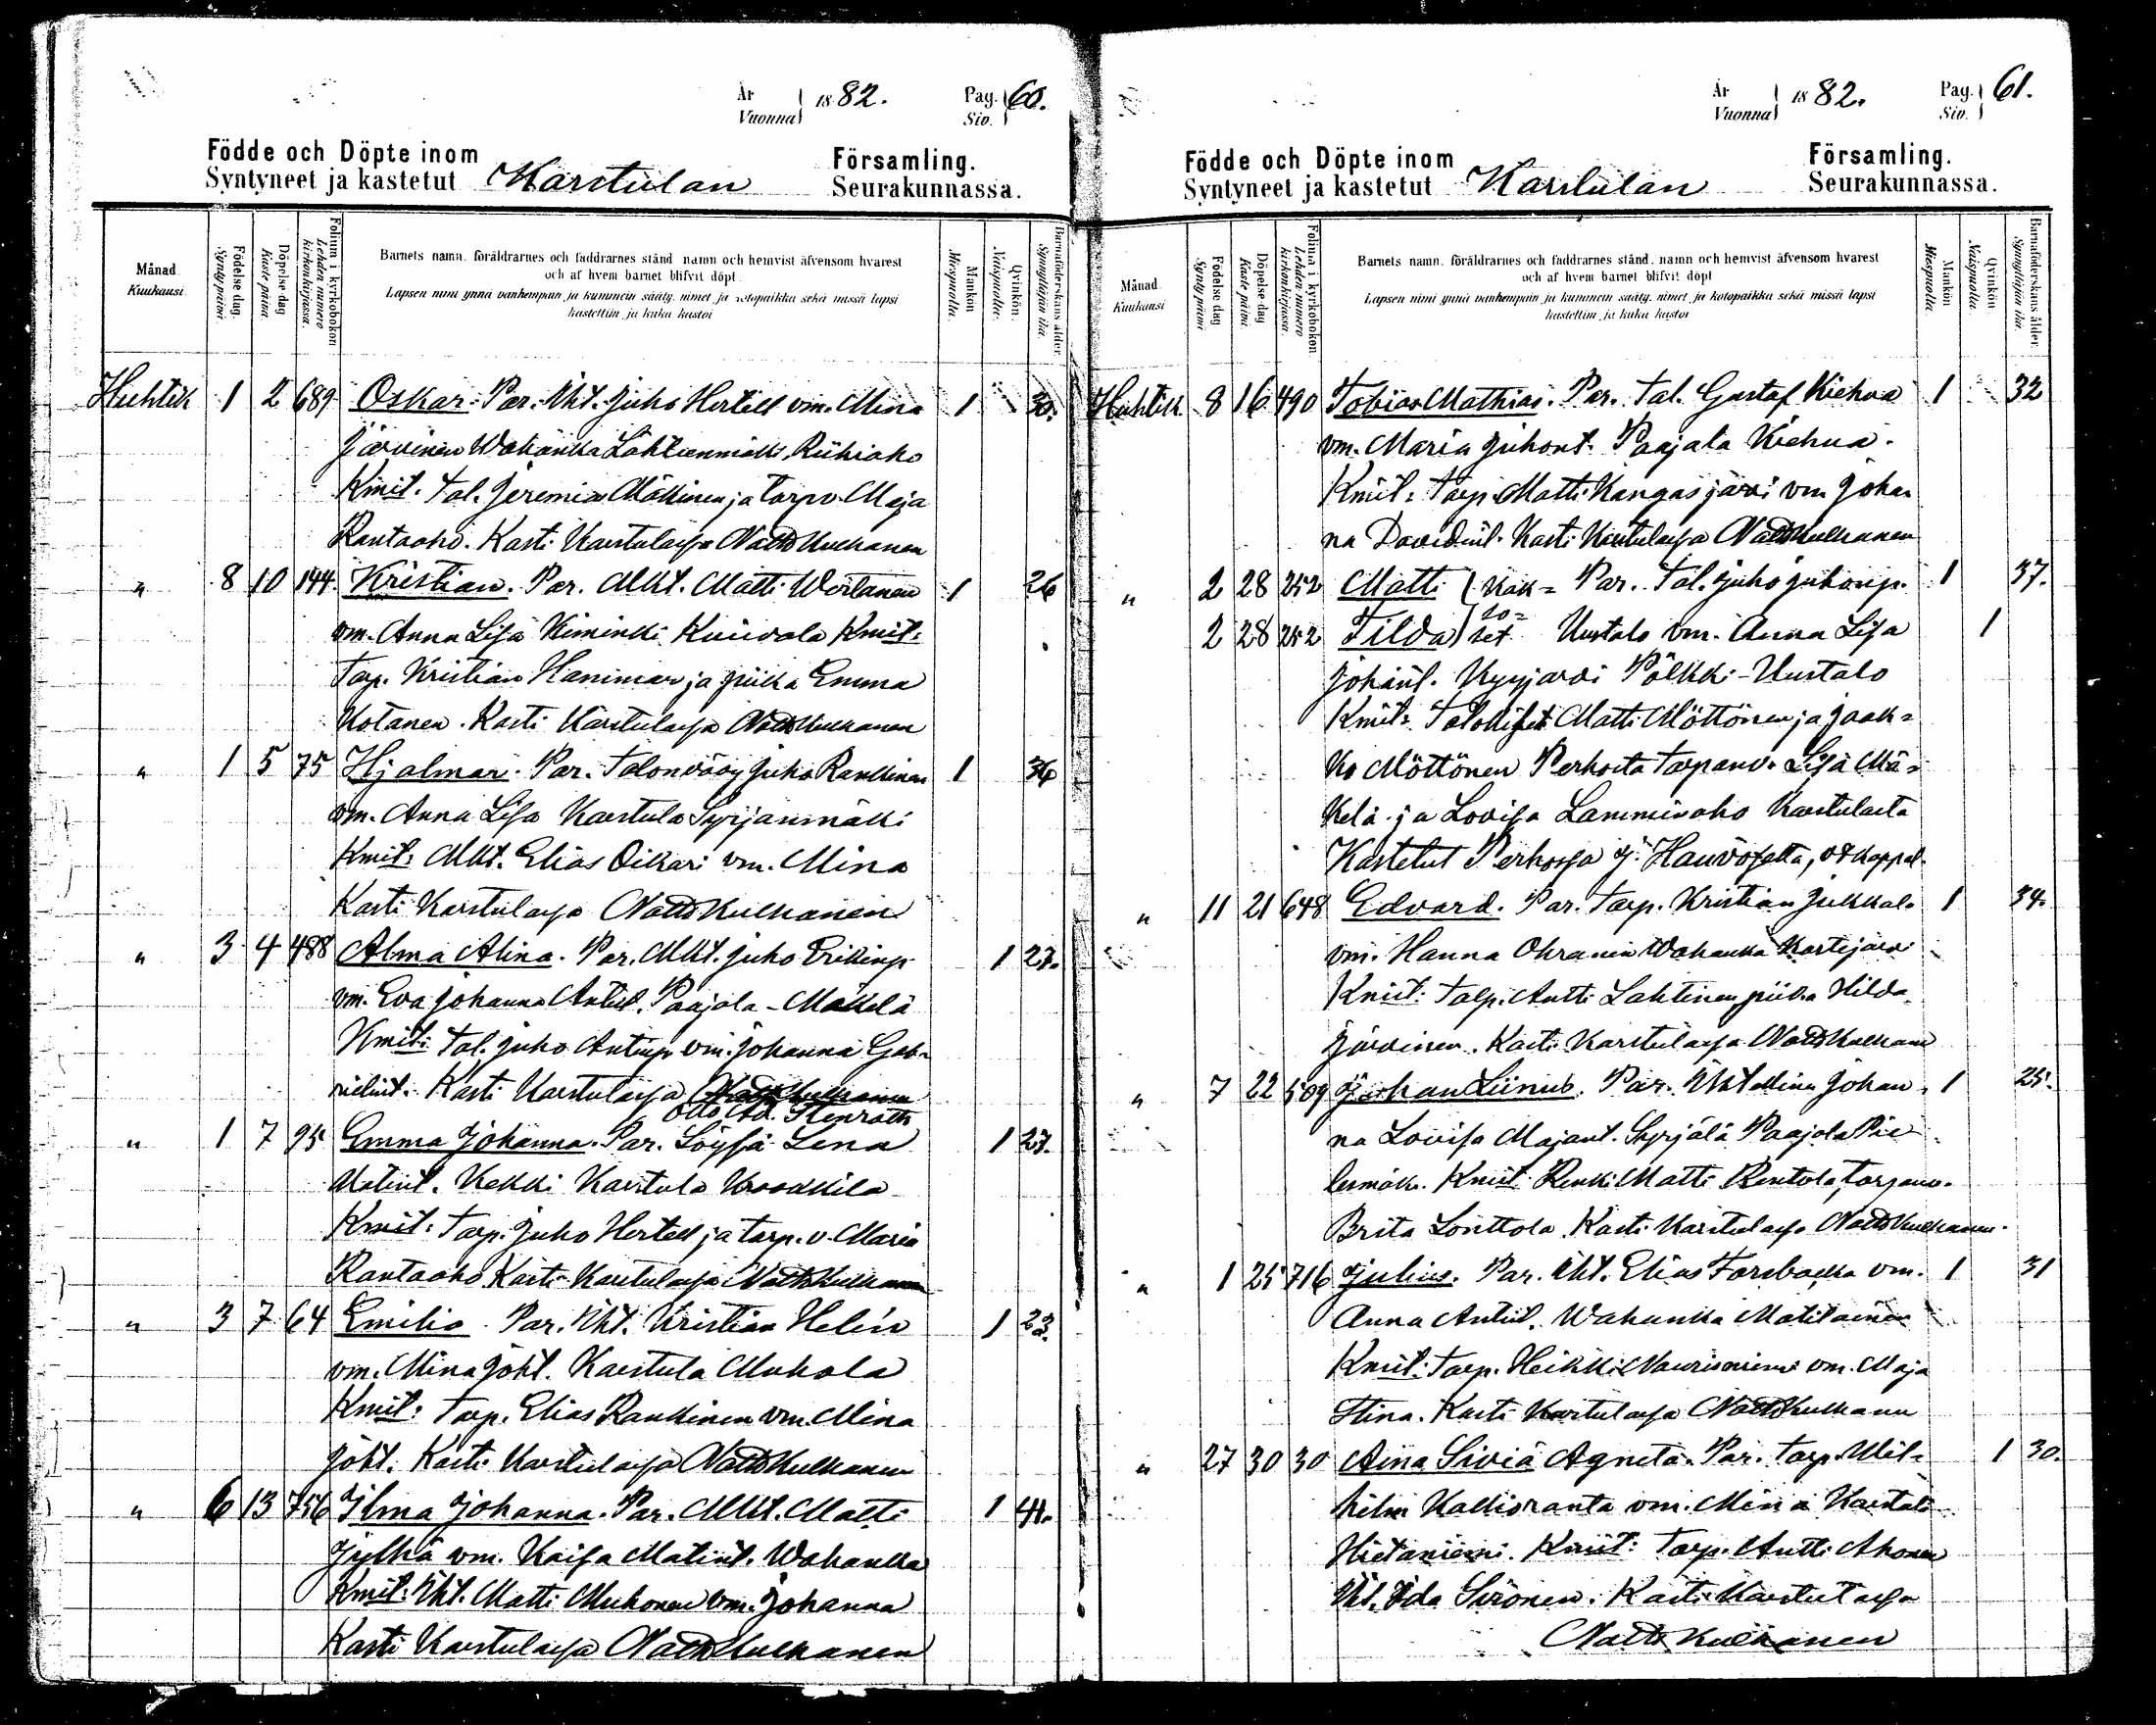 År
Vuonna 1882. Pag. Siv. 60.
Födde och Döpte inom Församling.
Syntyneet ja kastetut Karstulan Seurakunnassa.
Månad Kuukausi
Födelse dag. Synty päivä
Döpelse dag Kaste päivä
Folium i kyrkoboken Lehden numero kirkonkirjassa.
Barnets namn. föräldrarnes och faddrarnes stånd namn och hemvist äfvensom hvarest
och af hvem barnet blifvit döpt
Lapsen nimi ynnä vanhempain ja kummein sääty. nimet ja kotopaikka sekä missä lapsi
kastettiin ja kuka kastoi
Mankön Miespuolia.
Qvinkön. Naispuolia.
Barnaföderskans ålder. Synnyttäjän ikä.
Huhtik 1 2 689 Oskar. Par. Itst. Juho Hertell vm. Mina 1 30.
Järvinen Wahanka Lahtienmäki, Riihiaho
Kmit. Tal. Jeremias Mäkinen ja torp v. Maja
Rantaaho. Kasti Karstulassa Natti Kulhanen
" 8 10 144 Kristian. Par. Mkt. Matti Wertanen 1 26
vm. Anna Lisa Kiminki Kiuvola Kmit:
Torp. Kristian Hanimar ja piika Emma
Kotanen. Kasti Karstulassa Natti Kulhanen
" 1 5 75 Hjalmar. Par. Talonvävy Juho Rankinen 1 36
vm. Anna Lisa Karstula Syrjänmäki
Kmit: Mkt. Elias Oikari vm. Mina
Kasti Karstulassa Natti Kulhanen
" 3 4 488 Alma Alina. Par. Mkt. Juho Erikinp. 1 27.
vm. Eva Johanna Antint. Paajala-Mäkelä
Kmit: Tal. Juho Antinp. vm. Johanna Gab-
rielint. Kasti Karstulassa Natti Kulhanen
Otto Ad. Stenroth
" 1 7 95 Emma Johanna. Par. Löysä Lena 1 27.
Matint. Kekki Karstula
Kmit: Torp. Juho Hertell ja torp. v. Maria
Rantaaho Kasti Karstulassa Natti Kulhanen
" 3 7 64 Emilia. Par. Itst. Kristian Helin 1 23.
vm. Mina Joht. Karstula Muhola
Kmit: Torp. Elias Rankinen vm. Mina
Joht. Kasti Karstulassa Natti Kulhanen
" 6 13 756 Ilma Johanna. Par. Mkt. Matti 1 41.
Jylhä vm. Kaisa Matint. Wahanka
Kmit: Itst. Matti Muhonen vm. Johanna
Kasti Karstulassa Natti Kulhanen
År
Vuonna 1882. Pag. Siv. 61.
Födde och Döpte inom Församling.
Syntyneet ja kastetut Karstulan Seurakunnassa.
Månad Kuukausi
Födelse dag Synty päivä
Döpelse dag Kaste päivä
Folium i kyrkoboken Lehden numero kirkonkirjassa.
Barnets namn. föräldrarnes och faddrarnes stånd. namn och hemvist äfvensom hvarest
och af hvem barnet blifvit döpt
Lapsen nimi ynnä vanhempain ja kummein sääty. nimet ja kotopaikka sekä missä lapsi
kastettiin ja kuka kastoi
Mankön Miespuolia.
Qvinkön Naispuolia.
Barnaföderskans ålder. Synnyttäjän ikä.
Huhtik 8 16 490 Tobias Mathias. Par. Tal. Gustaf Kiehua 1 32
vm. Maria Juhont. Paajala Kiehua.
Kmit: Torp. Matti Kangasjärvi vm. Joha
na Davidint. Kasti Karstulassa Natti Kulhanen
" 2 28 252 Matti Kak= Par. Tal. Juho Juhonp. 1 37.
2 28 252 Tilda so= set Uustalo vm. Anna Lisa 1
Johant. Kyyjärvi Pölkki-Uustalo
Kmit: Talolliset Matti Möttönen ja Jaak=
ko Möttönen Perhosta torp anv. Lisa Mä=
kelä ja Lovisa Lamminaho Karstulasta
Kastetut Perhossa J. Hauvosetta, vt. kappal.
" 11 21 648 Edvard. Par. Torp. Kristian Jukkal. 1 34.
vm. Hanna Ohranen Wahanka Kortejärvi
Kmit: Talp. Antti Lahtinen piika Hilda
Järvinen. Kasti Karstulassa Natti Kulhane
" 7 22 509 Johan Liinus. Par. Itst Johan 1 25.
na Lovisa Majant. Syrjälä Paajala Pie
lesmäki. Kmit: Renki Matti Rentola, torp anv.
Brita Lonttola. Kasti Karstulassa Natti Kulhanen.
" 1 25 716 Julius. Par. Itst. Elias Forsbacka vm. 1 31
Anna Antint. Wahanka Matilainen
Kmit: Torp. Heikki Naurisniemi vm. Maja
Stina. Kasti Karstulassa Natti Kulhane
" 27 30 30 Aina Sivia Agneta. Par. torp. Wil= 1 30.
helm Kallioranta vm. Mina Karstula
Hietaniemi. Kmit: Torp. Antti Ahonen
Itst. Ida Sironen. Kasti Karstulassa
Natti Kulhanen